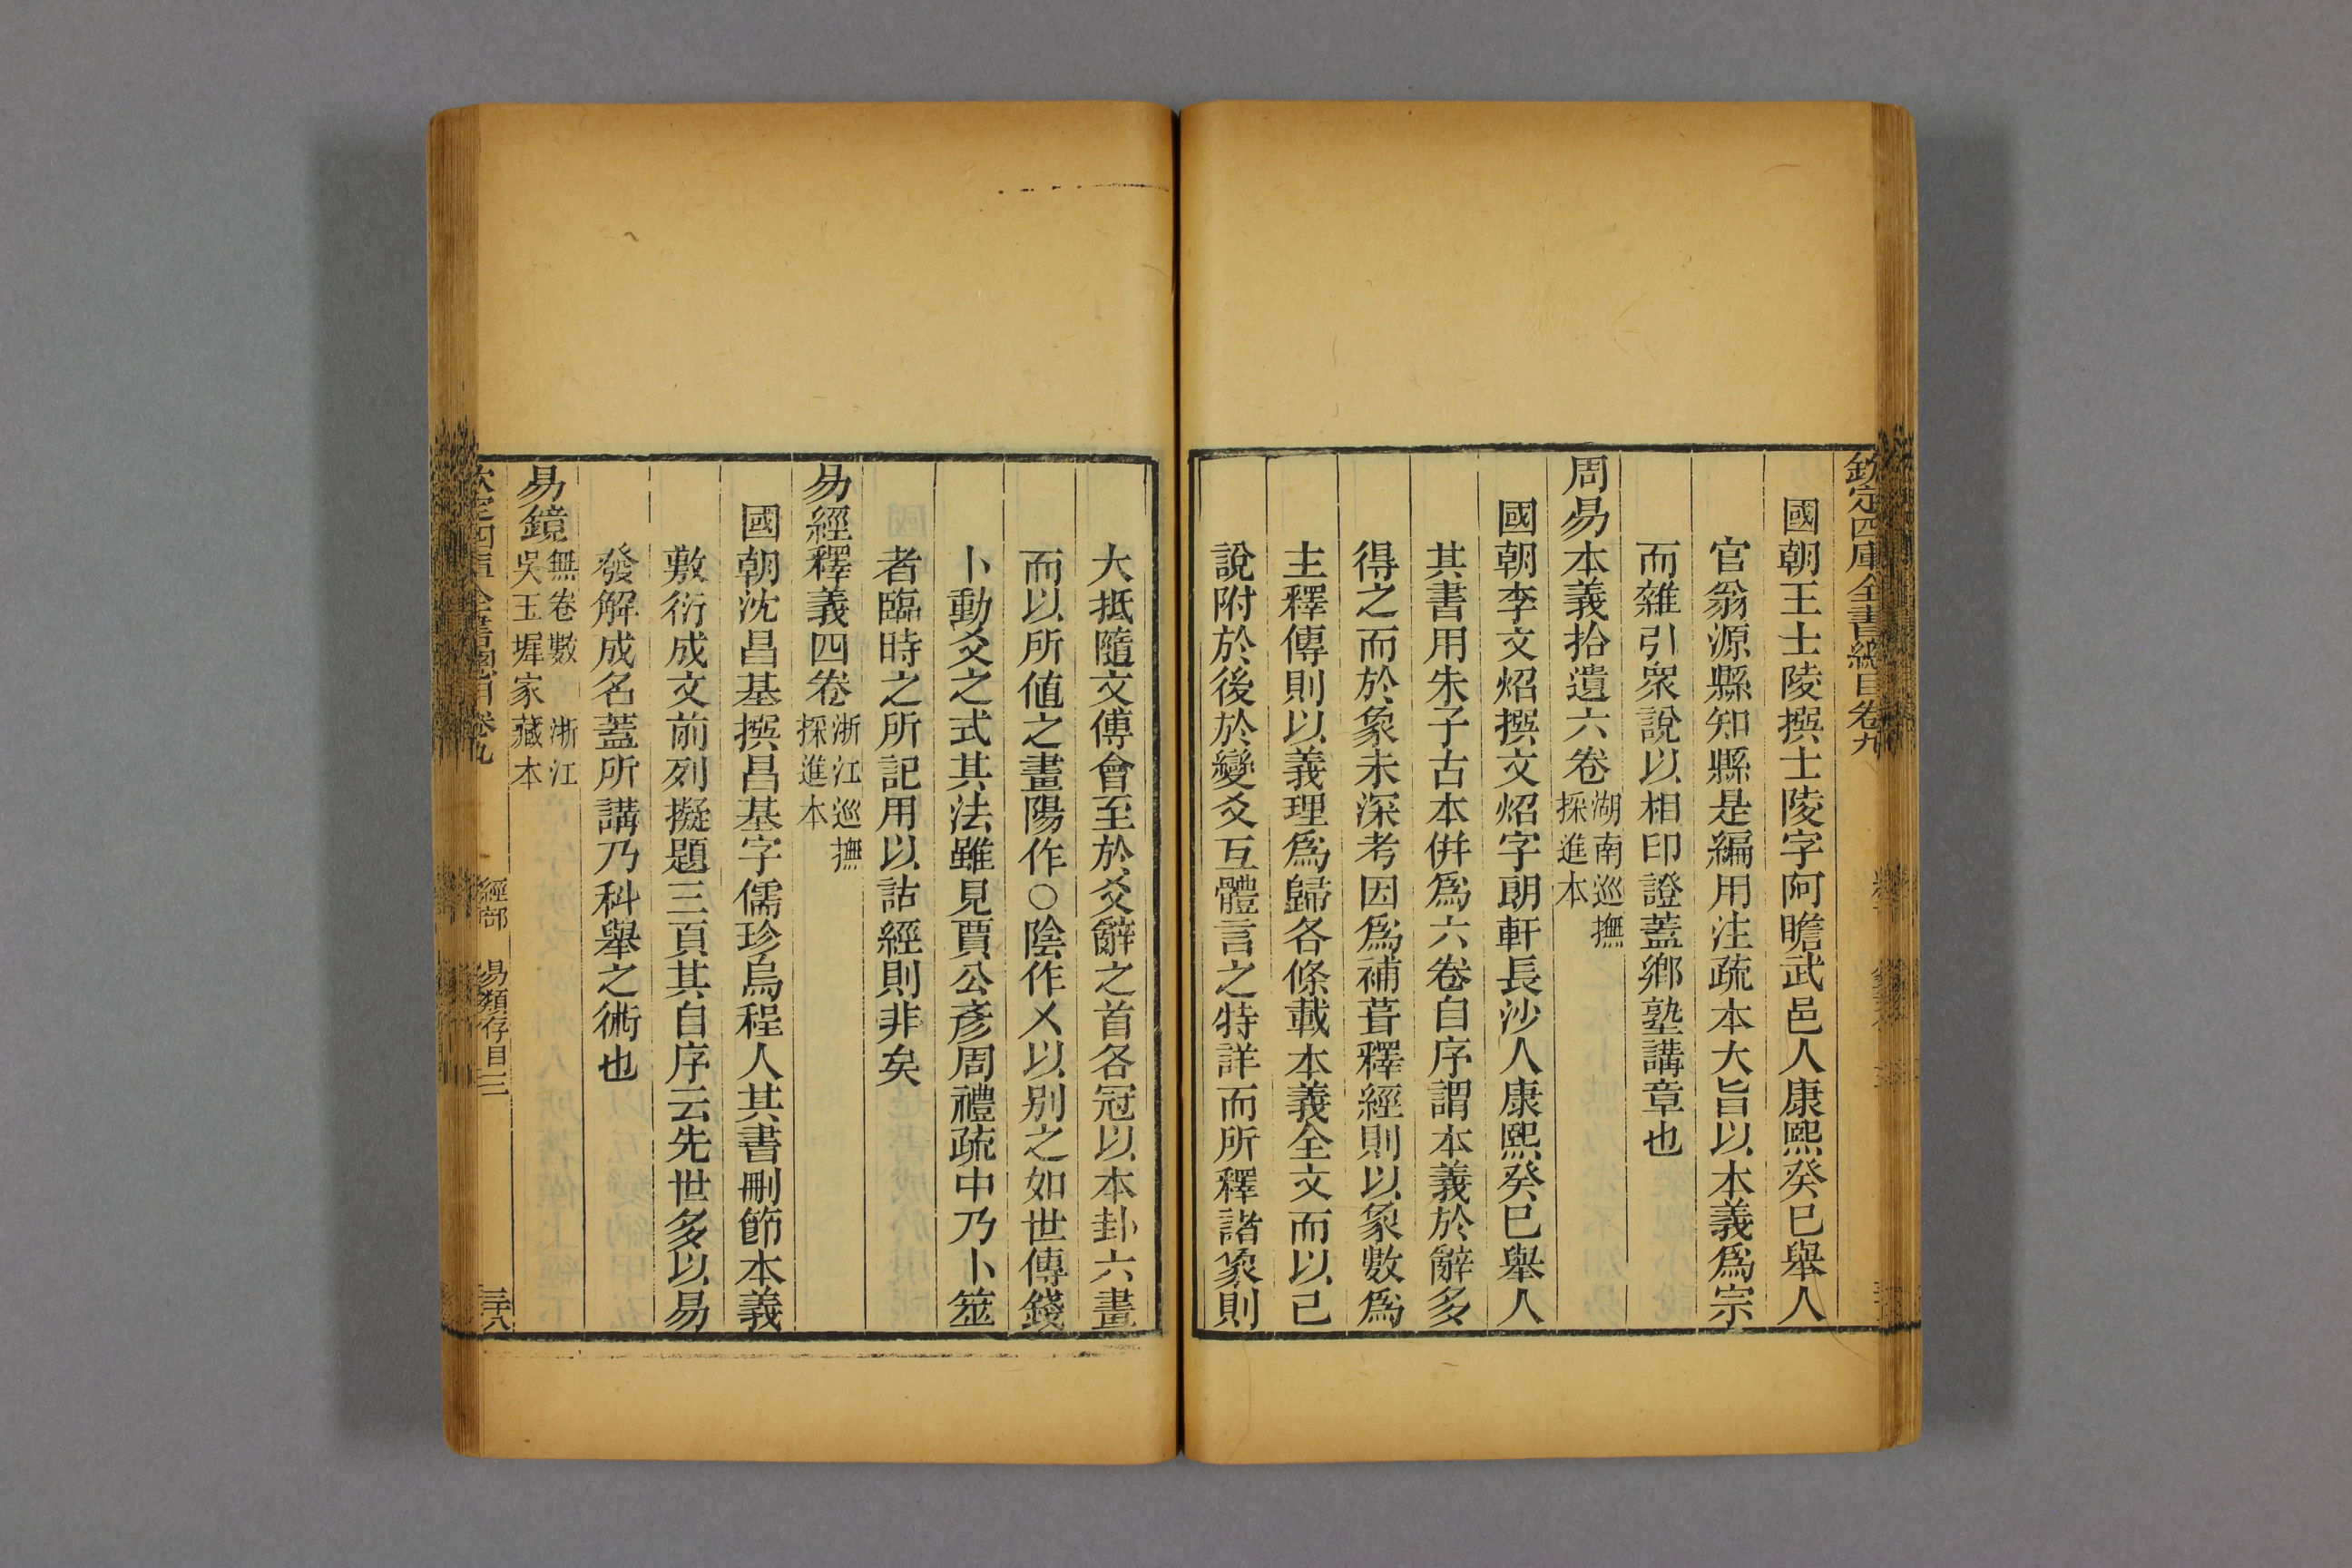 欽定四庫全書總目卷九
國朝王士陵撰士陵字阿瞻武邑人康熙癸巳舉人
官翁源縣知縣是編用注疏本大旨以本義爲宗
而雜引衆說以相印證蓋鄉塾講章也
周易本義拾遺六卷湖南巡撫採進本
國朝李文炤撰文炤字朗軒長沙人康熙癸巳舉人
其書用朱子古本併爲六卷自序謂本義於辭多
得之而於象未深考因爲補葺釋經則以象數爲
主釋傳則以義理爲歸各條載本義全文而以己
說附於後於變爻互體言之特詳而所釋諸象則
大抵隨文傅會至於爻辭之首各冠以本卦六畫
而以所値之畫陽作〇陰作㐅以別之如世傳錢
卜動爻之式其法雖見賈公彥周禮疏中乃卜筮
者臨時之所記用以詁經則非矣
易經釋義四卷浙江巡撫採進本
國朝沈昌基撰昌基字儒珍烏程人其書刪節本義
敷衍成文前列擬題三頁其自序云先世多以易
發解成名蓋所講乃科舉之術也
易鏡無卷數浙江吳玉墀家藏本
欽定四庫全書總目卷九 經部 易類存目三 三十八